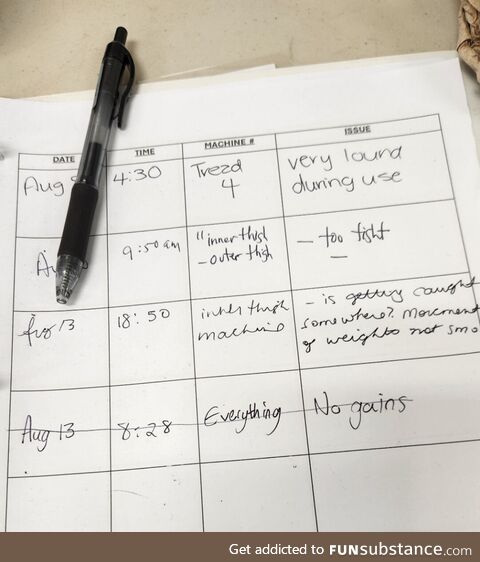 DATE TIME MACHINE # ISSUE
Aug 4:30 Tread very lound
4 during use
9:50 am "inner thigh - too tight
- outer thigh -
Aug 13 18:50 inner thigh - is getting caught
machine somewhere? Movement
of weights not smo
Aug 13 8:28 Everything No gains
Get addicted to FUNsubstance.com